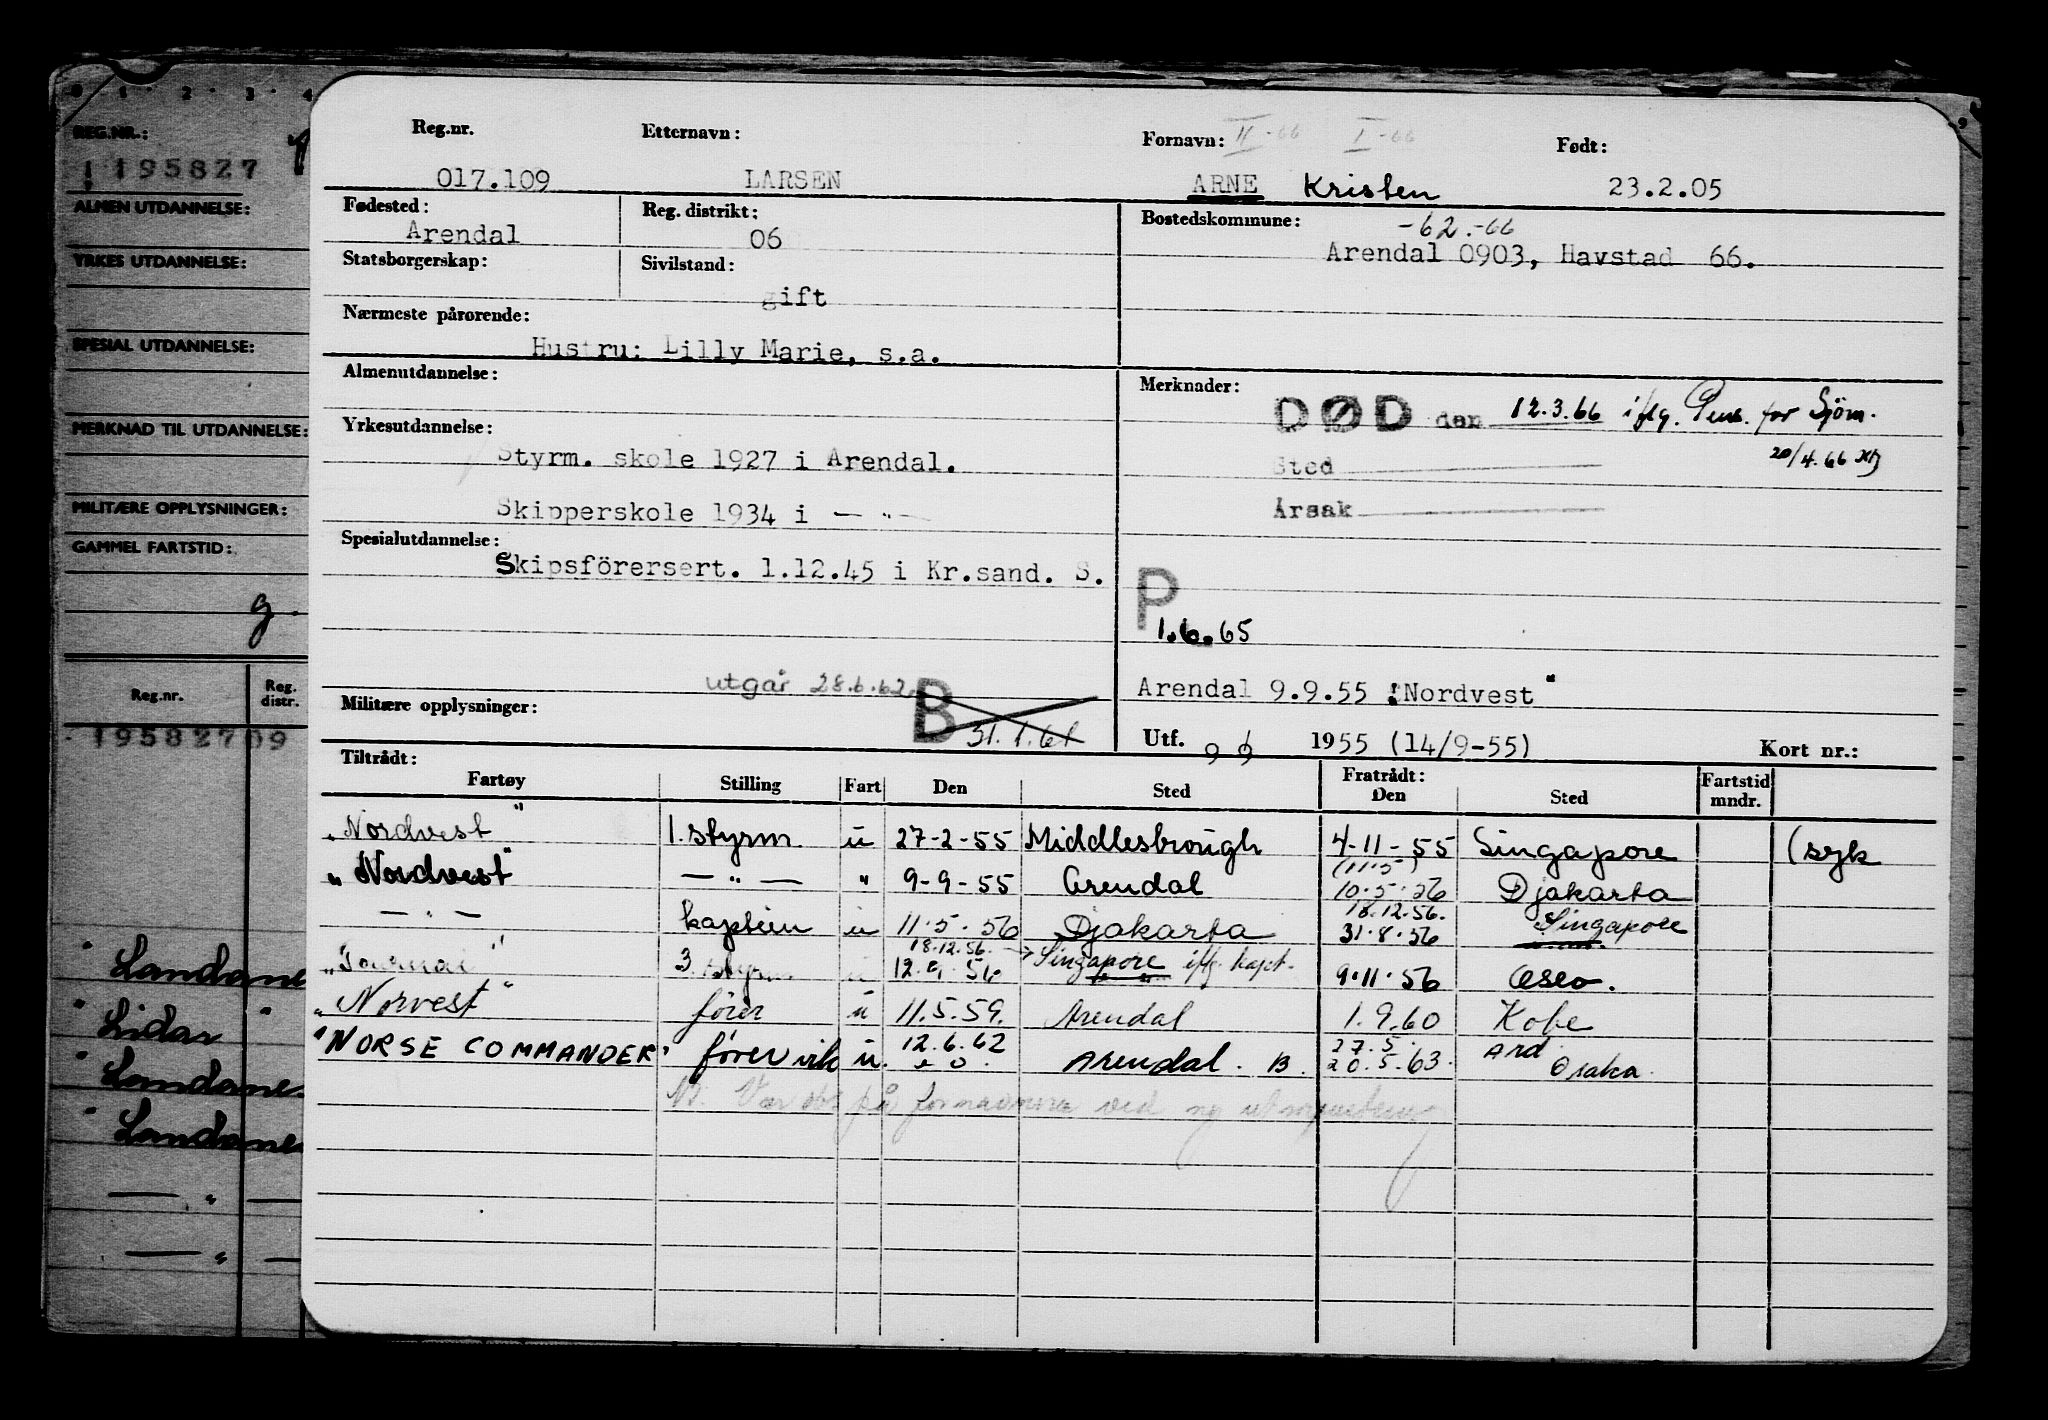 0 1 2 3 4
REG.NR.:
195827
ALMEN UTDANNELSE:
YRKES UTDANNELSE:
SPESIAL UTDANNELSE:
MERKNAD TIL UTDANNELSE:
MILITÆRE OPPLYSNINGER:
GAMMEL FARTSTID:
g.
Reg.nr. Reg. distr.
19582709
" Landane
" Lidar "
" Landane
" Landane
— " —
— " —
Reg.nr. Etternavn: Fornavn: II-66 I-66 Født:
017.109 LARSEN ARNE Kristen 23.2.05
Fødested: Reg. distrikt: Bostedskommune: -62.-66
Arendal 06 Arendal 0903, Havstad 66.
Statsborgerskap: Sivilstand:
gift
Nærmeste pårørende:
Hustru: Lilly Marie, s.a.
Almenutdannelse:
Yrkesutdannelse:
Styrm. skole 1927 i Arendal.
Skipperskole 1934 i — " —
Spesialutdannelse:
Skipsförersert. 1.12.45 i Kr.sand. S.
utgår 28.6.62
Militære opplysninger: B 31.1.61
Merknader:
DØD den 12.3.66 iflg. Pens. for Sjöm.
Sted 20/4.66
Årsak
P
1.6.65
Arendal 9.9.55 "Nordvest"
Utf. 9 1955 (14/9-55) Kort nr.:
Tiltrådt: Fratrådt:
Fartøy Stilling Fart Den Sted Den Sted Fartstid mndr.
"Nordvest" 1. styrm u 27-2-55 Middlesbrough 4-11-55 Singapore (syk
(11.5)
"Nordvest" — " — " 9-9-55 Arendal 10.5.56 Djakarta
18.12.56.
— " — kaptein u 11.5.56 Djakarta 31.8.56 Singapore
18.12.56. Singapore iflg. kapt.
3. styrm u 9.11.56 Oslo.
"Norvest" förer u 11.5.59. Arendal 1.9.60 Kobe
12.6.62 27.5. Ard
"NORSE COMMANDER" förer vik u. Arendal. B. 20.5.63. Osaka.
på ved ny